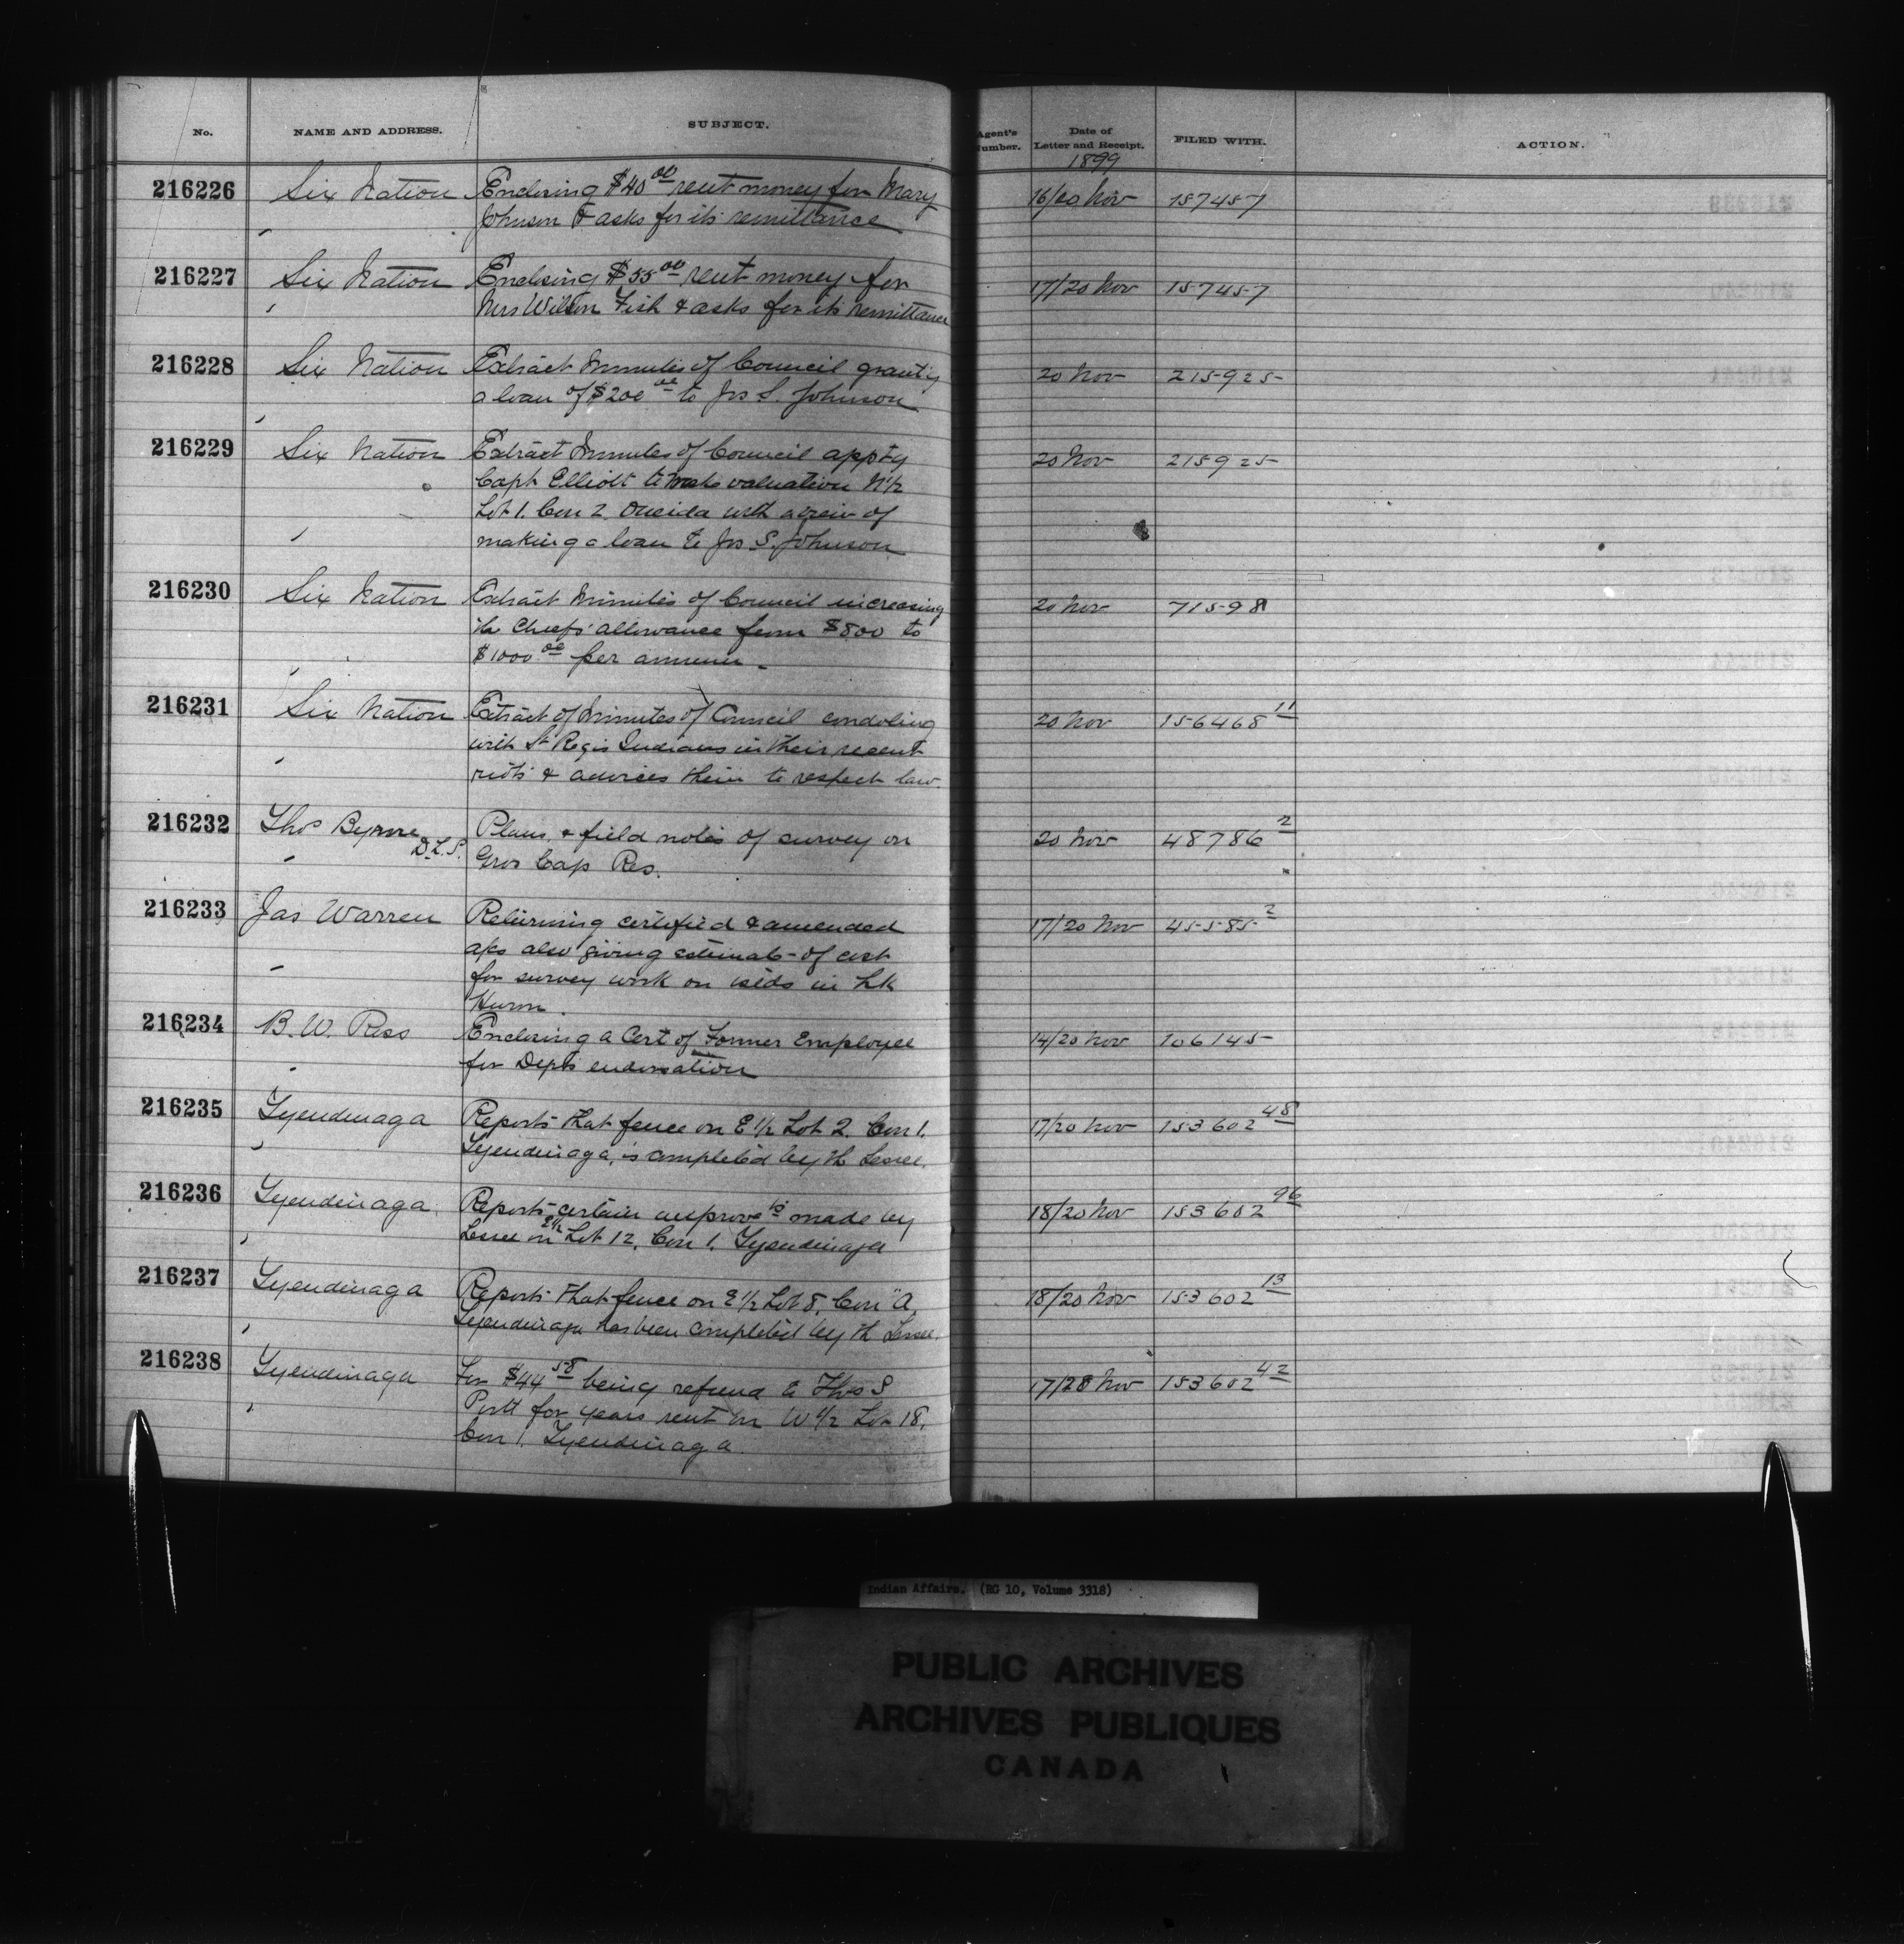 No. NAME AND ADDRESS. SUBJECT. Agent's Number. Date of Letter and Receipt. FILED WITH. ACTION.
1899
216226 Six Nation Enclosing $40 00 rent money for Mary 16/20 Nov 157457
Johnson & asks for its remittance
216227 Six Nation Enclosing $55 00 rent money for 17/20 Nov 157457
Mrs Wilson Fish & asks for its remittance
216228 Six Nation Extract Minutes of Council grantg 20 Nov 215925
a loan of $200 00 to Jos S. Johnson
216229 Six Nation Extract Minutes of Council apptg 20 Nov 215925
Capt Elliott to make valuation N½
Lot 1. Con 2. Oneida with a view of
making a loan to Jos S. Johnson
216230 Six Nation Extract Minutes of Council increasing 20 Nov 71598
the Chiefs' allowance from $800 to
$1000 00 per annum -
216231 Six Nation Extract of Minutes of Council condoling 20 Nov 156468 11
with St Regis Indians in their recent
riots & advices them to respect law.
216232 Thos Byrne D.L.S. Plans & field notes of survey on 20 Nov 48786 2
Gros Cap Res.
216233 Jas Warren Returning certified & amended 17/20 Nov 45585 2
a/cs also giving estimate of cost
for survey work on islds in Lk
Huron.
216234 B. W. Ross Enclosing a Cert of Former Employee 14/20 Nov 106145
for Depts endorsation
216235 Tyendinaga Reports that fence on E ½ Lot 2. Con 1. 17/20 Nov 153602 48
Tyendinaga, is completed by th Lessee.
216236 Tyendinaga Reports certain improvets made by 18/20 Nov 153602 96
Lessee on E½ Lot 12, Con 1. Tyendinaga
216237 Tyendinaga Reports that fence on E ½ Lot 8, Con "A, 18/20 Nov 153602 13
Tyendinaga has been completed by th Lessee.
216238 Tyendinaga For $44 58 being refund to Thos S 17/28 Nov 153602 42
for years rent on W ½ Lot 18,
Con 1. Tyendinaga.
Indian Affairs. (RG 10, Volume 3318)
PUBLIC ARCHIVES
ARCHIVES PUBLIQUES
CANADA